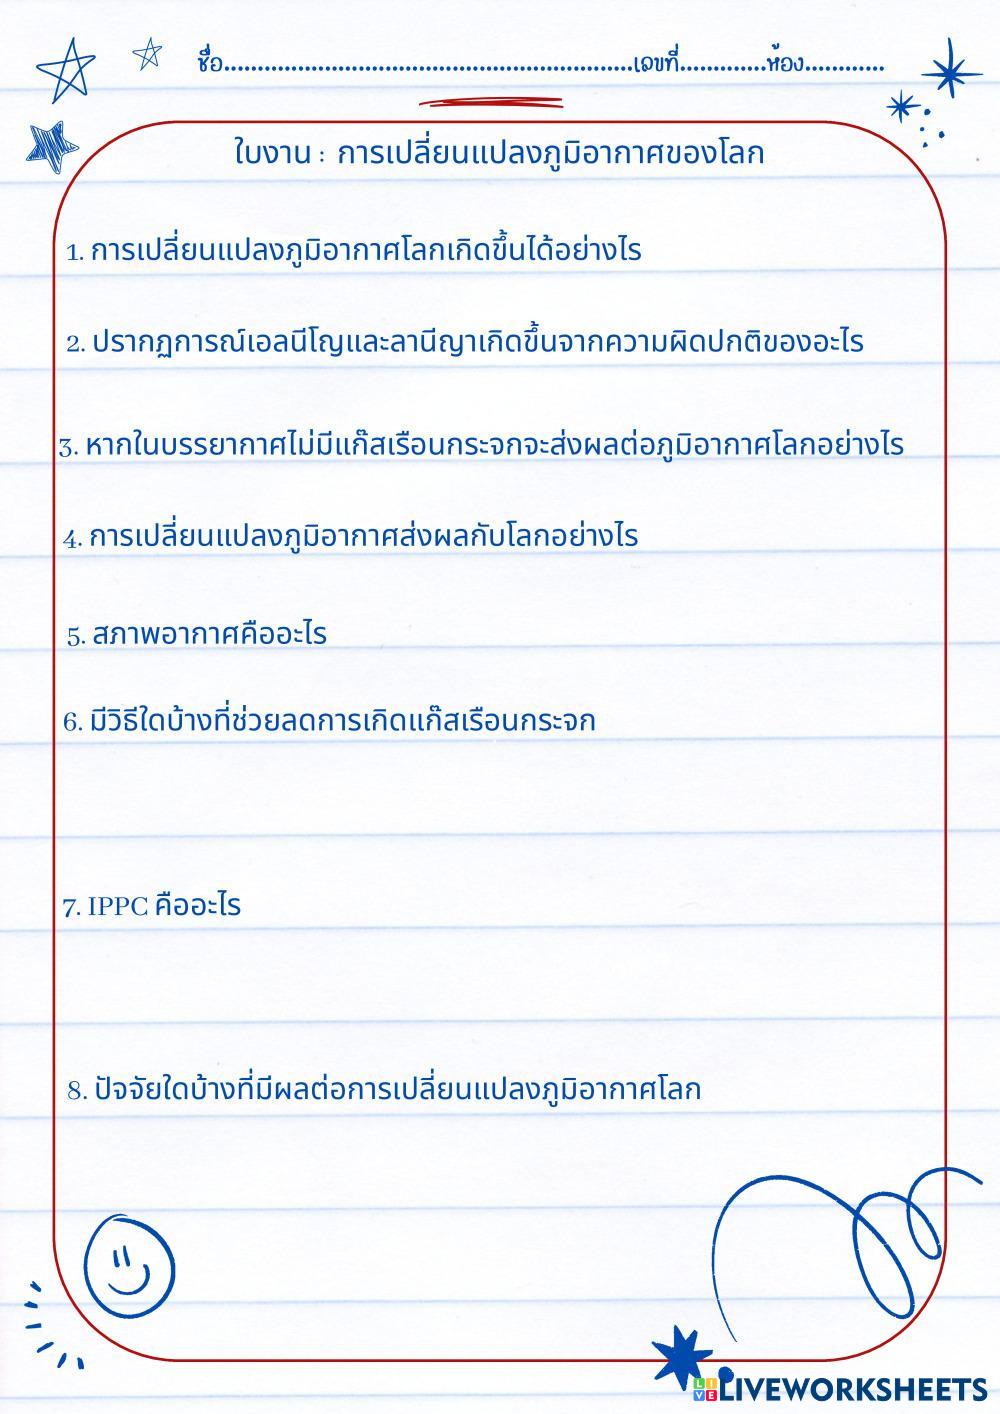 ชื่อ............................................................เลขที่.............ห้อง............
ใบงาน : การเปลี่ยนแปลงภูมิอากาศของโลก
1. การเปลี่ยนแปลงภูมิอากาศโลกเกิดขึ้นได้อย่างไร
2. ปรากฏการณ์เอลนีโญและลานีญาเกิดขึ้นจากความผิดปกติของอะไร
3. หากในบรรยากาศไม่มีแก๊สเรือนกระจกจะส่งผลต่อภูมิอากาศโลกอย่างไร
4. การเปลี่ยนแปลงภูมิอากาศส่งผลกับโลกอย่างไร
5. สภาพอากาศคืออะไร
6. มีวิธีใดบ้างที่ช่วยลดการเกิดแก๊สเรือนกระจก
7. IPPC คืออะไร
8. ปัจจัยใดบ้างที่มีผลต่อการเปลี่ยนแปลงภูมิอากาศโลก
LIVE LIVEWORKSHEETS